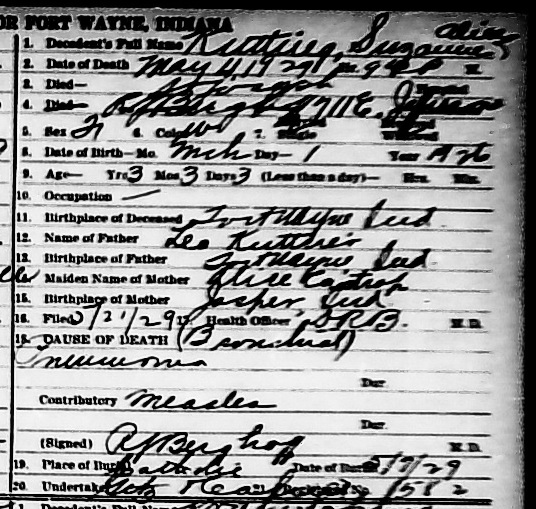 OR FORT WAYNE, INDIANA
1. Decedent's Full Name Kuttner, Suzanne
2. Date of Death May 4, 1929 Hr. 9 40 P M.
3. Died— St Joseph
4. Died— R J Berghoff 4711 E.
5. Sex F 6. Color W 7. Single
8. Date of Birth—Mo. Mch Day— 1 Year 1926
9. Age— Yrs 3 Mos 3 Days 3 (Less than a day)— Hrs. Min.
10. Occupation —
11. Birthplace of Deceased Fort Wayne Ind
12. Name of Father Leo Kuttner
13. Birthplace of Father Ft Wayne Ind
Maiden Name of Mother Alice
15. Birthplace of Mother Jasper, Ind
16. Filed 5/21/29 17. Health Officer, D.R.B. M. D.
18. CAUSE OF DEATH (Bronchial)
Pneumonia
Dur
Contributory Measles
Dur.
(Signed) R J Berghoff M. D.
19. Place of Burial Catholic Date of Burial 5/7/29
20. Undertaker Getz 1582
1. Decedent's Full Name